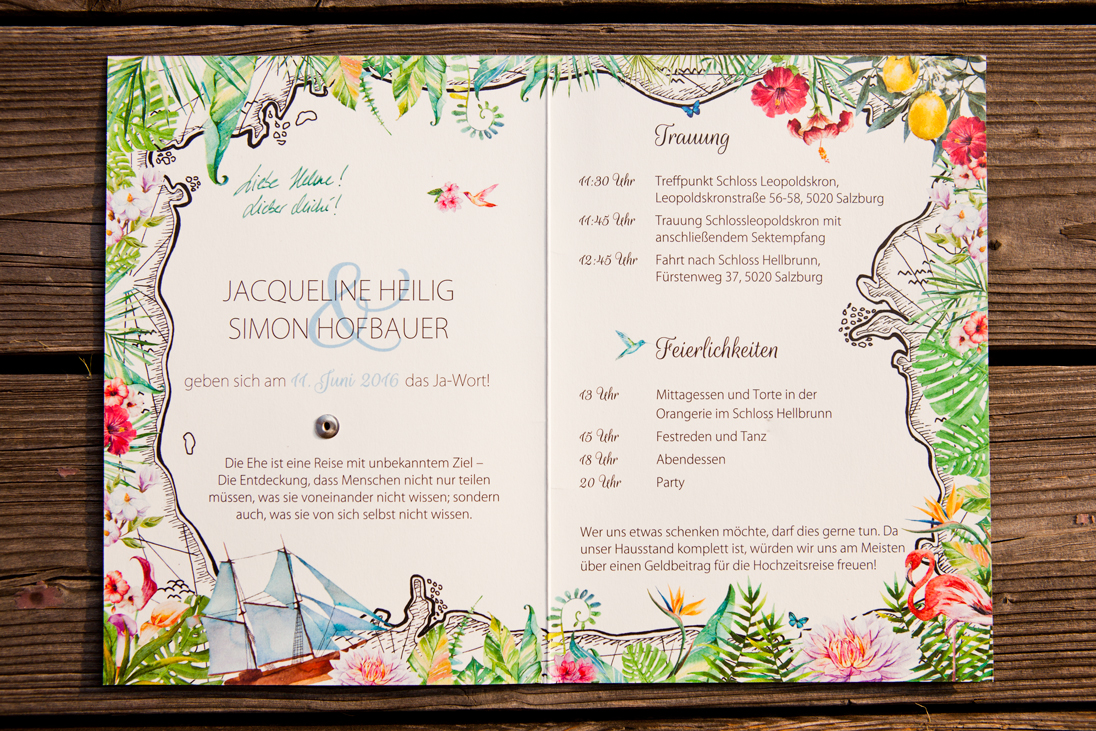 Liebe Helene!
Lieber Michi!
JACQUELINE HEILIG
&
SIMON HOFBAUER
geben sich am 11. Juni 2016 das Ja-Wort!
Die Ehe ist eine Reise mit unbekanntem Ziel –
Die Entdeckung, dass Menschen nicht nur teilen
müssen, was sie voneinander nicht wissen; sondern
auch, was sie von sich selbst nicht wissen.
Trauung
11:30 Uhr Treffpunkt Schloss Leopoldskron,
Leopoldskronstraße 56-58, 5020 Salzburg
11:45 Uhr Trauung Schlossleopoldskron mit
anschließendem Sektempfang
12:45 Uhr Fahrt nach Schloss Hellbrunn,
Fürstenweg 37, 5020 Salzburg
Feierlichkeiten
13 Uhr Mittagessen und Torte in der
Orangerie im Schloss Hellbrunn
15 Uhr Festreden und Tanz
18 Uhr Abendessen
20 Uhr Party
Wer uns etwas schenken möchte, darf dies gerne tun. Da
unser Hausstand komplett ist, würden wir uns am Meisten
über einen Geldbeitrag für die Hochzeitsreise freuen!